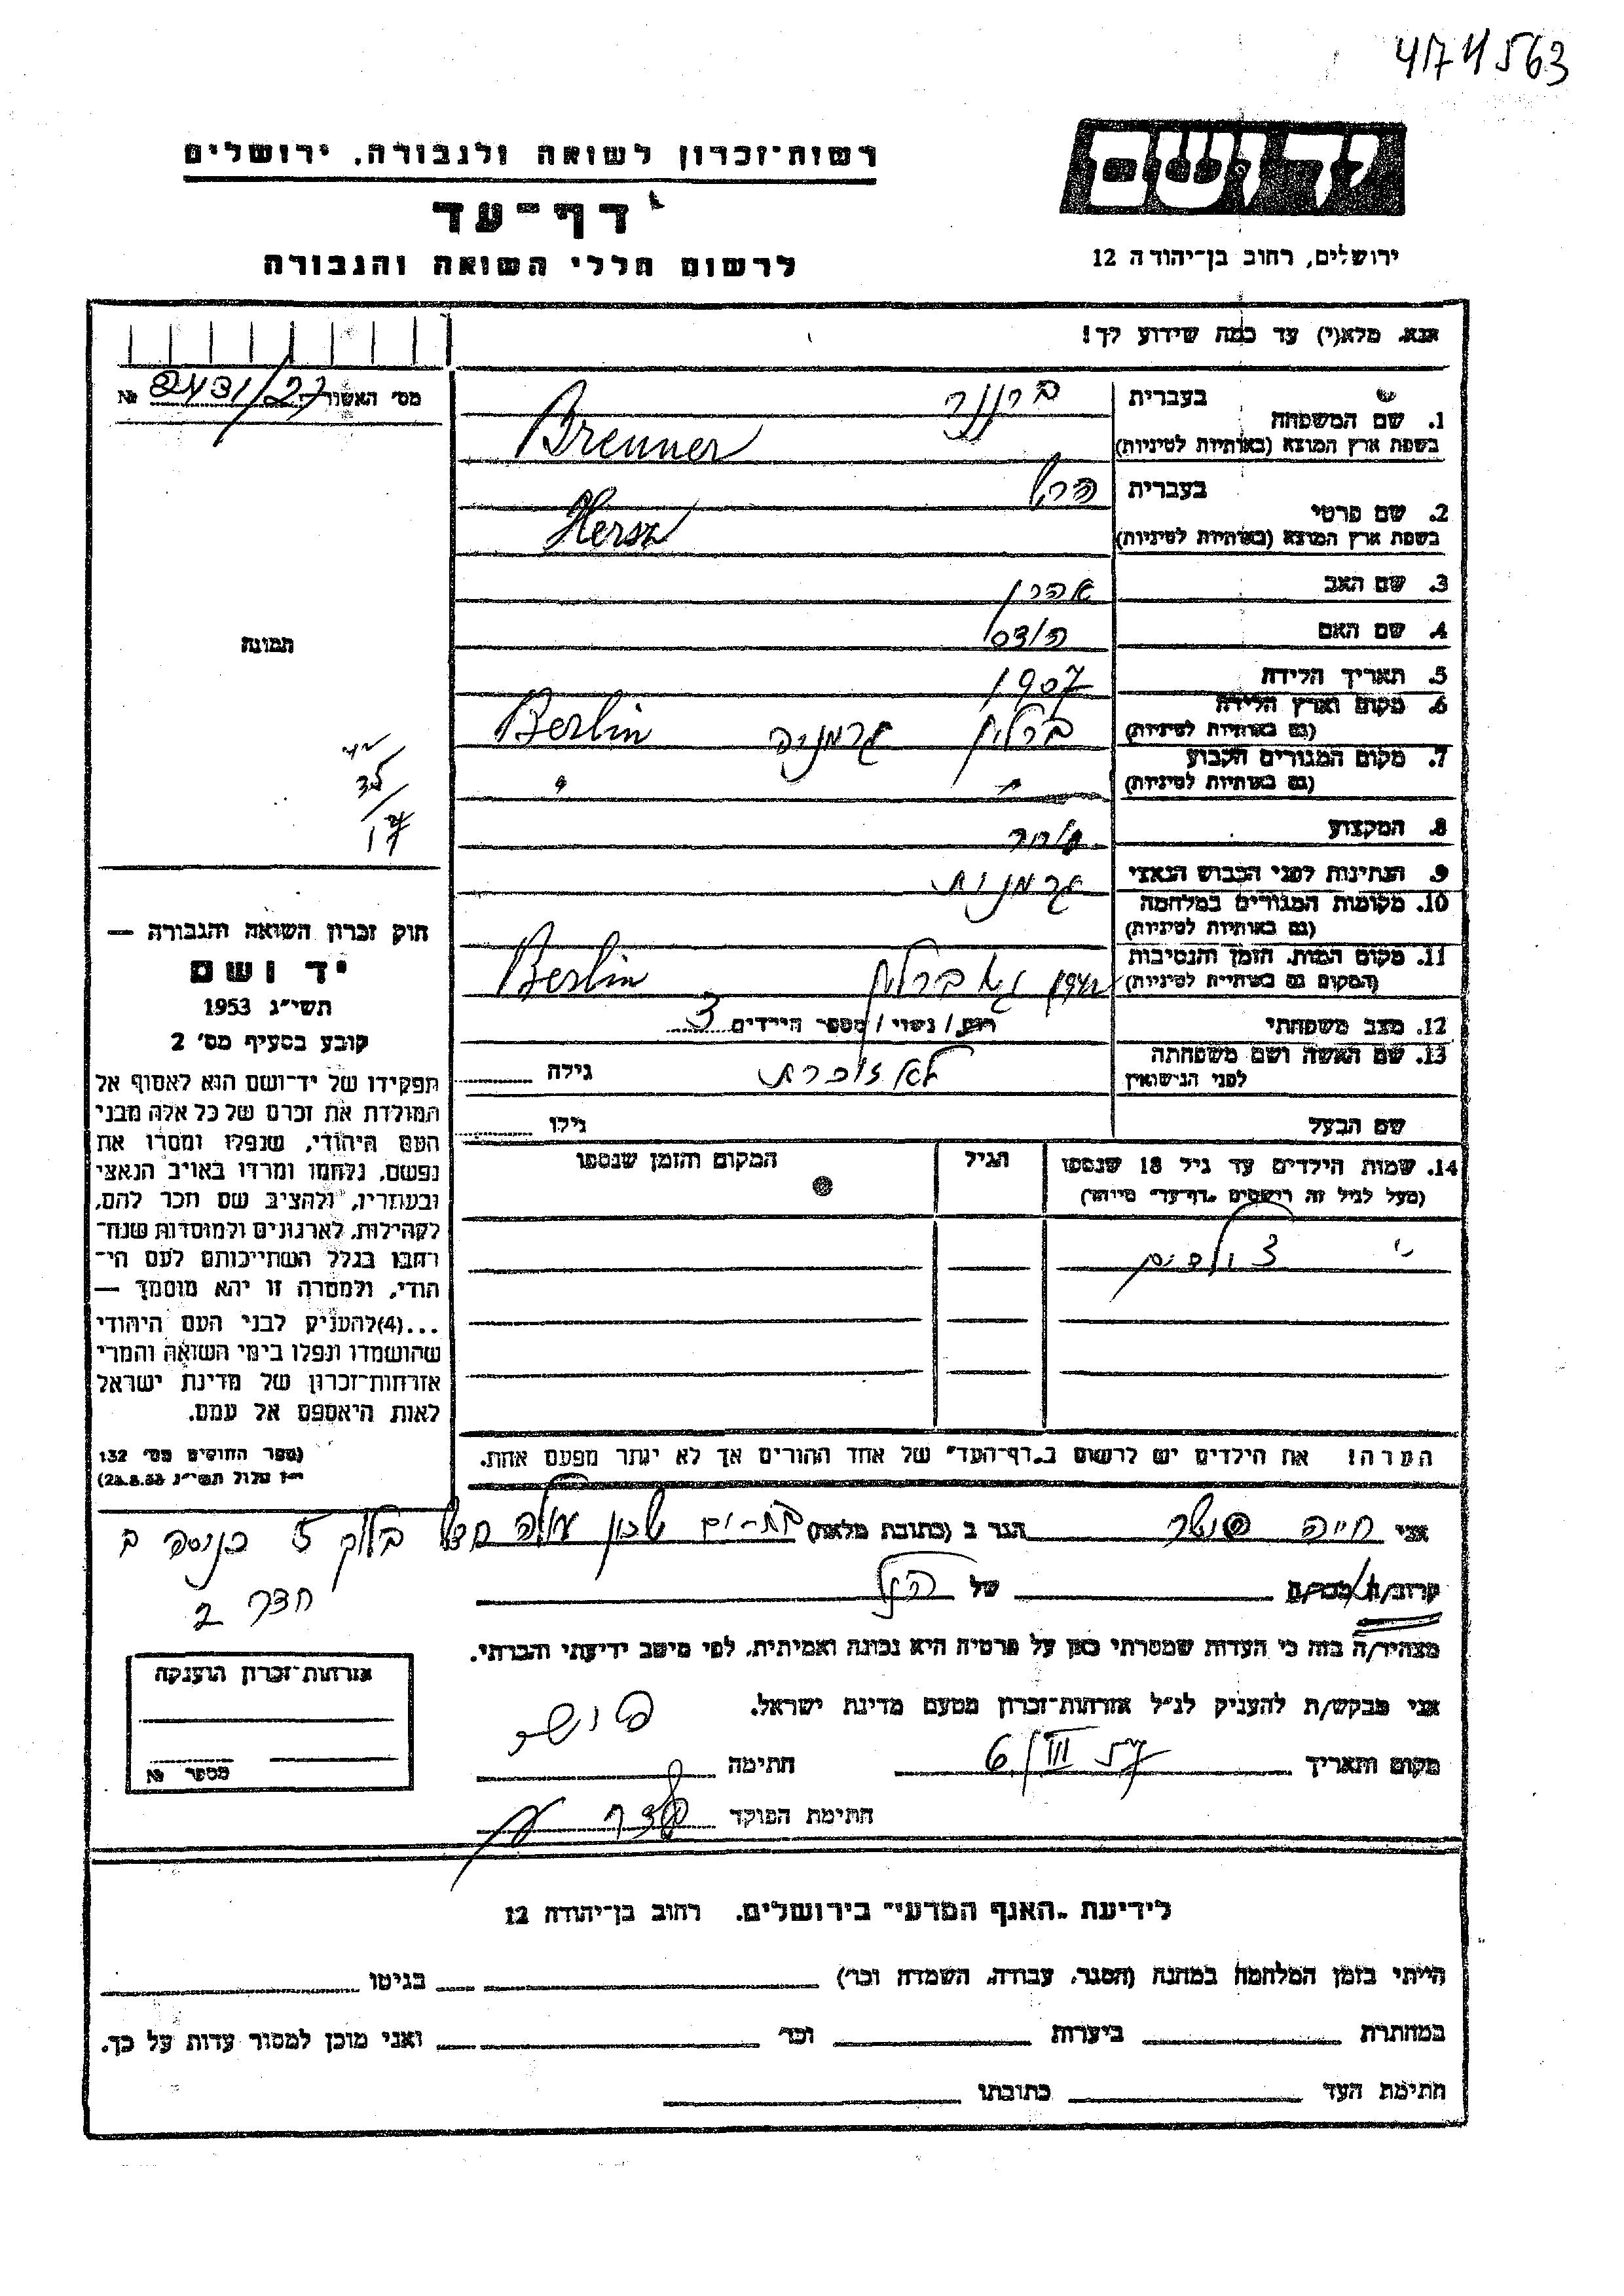 4174563
ידושם
ירושלים, רחוב בן־יהודה 12
רשות־זכרון לשואה ולגבורה, ירושלים
דף־עד
לרשום חללי השואה והגבורה
אנא, מלא(י) עד כמה שידוע לך!
מס׳ האשור 2431/27 №
1. שם המשפחה
בעברית ברנר
בשפת ארץ המוצא (באותיות לטיניות) Brenner
2. שם פרטי
בעברית הרש
בשפת ארץ המוצא (באותיות לטיניות) Hersz
3. שם האב אהרן
4. שם האם
5. תאריך הלידה 1907
6. מקום וארץ הלידה
(גם באותיות לטיניות) ברלין גרמניה Berlin
7. מקום המגורים הקבוע
(גם באותיות לטיניות) " "
8. המקצוע
9. הנתינות לפני הכבוש הנאצי גרמנית
10. מקומות המגורים במלחמה
(גם באותיות לטיניות)
11. מקום המות, הזמן והנסיבות
(המקום גם באותיות לטיניות) ברלין Berlin
12. מצב משפחתי רווק / נשוי / מספר הילדים 3
13. שם האשה ושם משפחתה
לפני הנישואין לא זוכרת גילה
שם הבעל גילו
14. שמות הילדים עד גיל 18 שנספו
(מעל לגיל זה רושמים „דף־עד״ מיוחד)
הגיל
המקום והזמן שנספו
3 ילדים
הערה! את הילדים יש לרשום ב„דף־העד״ של אחד ההורים אך לא יותר מפעם אחת.
תמונה
35
17
חוק זכרון השואה והגבורה —
יד ושם
תשי״ג 1953
קובע בסעיף מס׳ 2
תפקידו של יד־ושם הוא לאסוף אל
המולדת את זכרם של כל אלה מבני
העם היהודי, שנפלו ומסרו את
נפשם, נלחמו ומרדו באויב הנאצי
ובעוזריו, ולהציב שם וזכר להם,
לקהילות, לארגונים ולמוסדות שנח־
רבו בגלל השתייכותם לעם הי־
הודי, ולמטרה זו יהא מוסמך —
...(4)להעניק לבני העם היהודי
שהושמדו ונפלו בימי השואה והמרי
אזרחות־זכרון של מדינת ישראל
לאות היאספם אל עמם.
(ספר החוקים מס׳ 132
י״ז אלול תשי״ג 28.8.53)
אני חיה הגר ב (כתובת מלאה) בת־ים שכון עולה בלוק 5 כניסה ב
חדר 2
קרוב/ה מכר/ה של הנ״ל
מצהיר/ה בזה כי העדות שמסרתי כאן על פרטיה היא נכונה ואמיתית, לפי מיטב ידיעתי והכרתי.
אני מבקש/ת להעניק לנ״ל אזרחות־זכרון מטעם מדינת ישראל.
מקום ותאריך 6/III 57 חתימה
חתימת הפוקד
אזרחות־זכרון הוענקה
מספר №
לידיעת „האגף המדעי״ בירושלים. רחוב בן־יהודה 12
הייתי בזמן המלחמה במחנה (הסגר, עבודה, השמדה וכו׳) בגיטו
במחתרת ביערות וכו׳ ואני מוכן למסור עדות על כך.
חתימת העד כתובתו